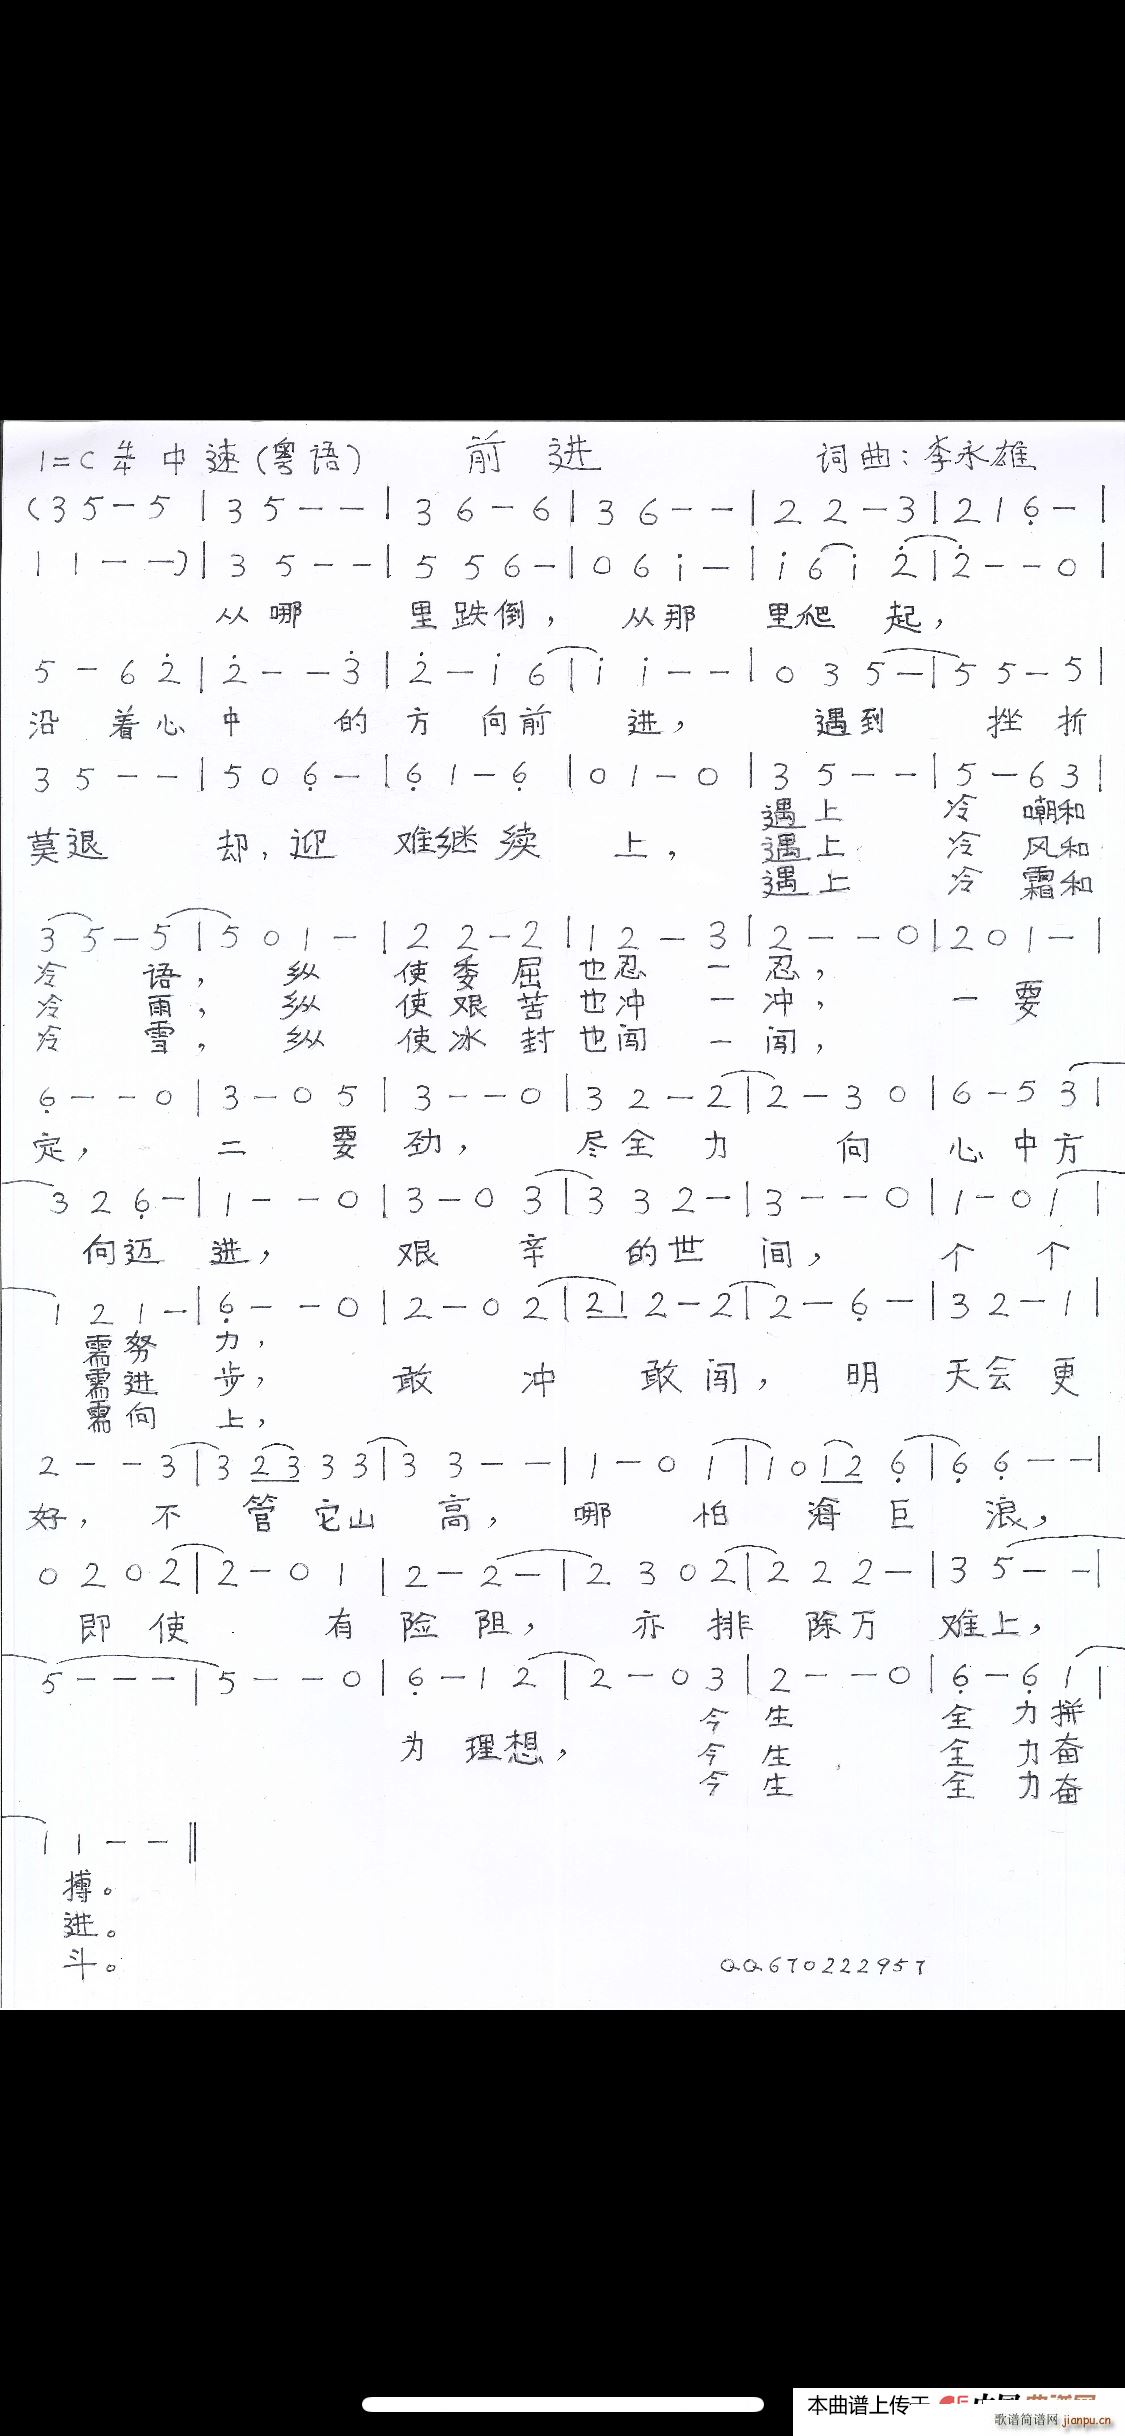 1=C 4/4 中速(粤语) 前进 词曲:李永雄
(3 5 - 5 | 3 5 - - | 3 6 - 6 | 3 6 - - | 2 2 - 3 | 2 1 6̣ - |
1 1 - -) | 3 5 - - | 5 5 6 - | 0 6 i - | i 6 i 2̇ | 2̇ - - 0 |
从哪 里跌倒, 从那 里爬 起,
5 - 6 2̇ | 2̇ - - 3̇ | 2̇ - i 6 | i i - - | 0 3 5 - | 5 5 - 5 |
沿 着心 中 的 方 向前 进, 遇到 挫 折
3 5 - - | 5 0 6̣ - | 6̣ 1 - 6̣ | 0 1 - 0 | 3 5 - - | 5 - 6 3 |
遇上 冷 嘲和
莫退 却,迎 难继 续 上, 遇上 冷 风和
遇上 冷 霜和
3 5 - 5 | 5 0 1 - | 2 2 - 2 | 1 2 - 3 | 2 - - 0 | 2 0 1 - |
冷 语, 纵 使委 屈 也忍 一 忍,
冷 雨, 纵 使艰 苦 也冲 一 冲, 一 要
冷 雪, 纵 使冰 封 也闯 一 闯,
6̣ - - 0 | 3 - 0 5 | 3 - - 0 | 3 2 - 2 | 2 - 3 0 | 6 - 5 3 |
定, 二 要 劲, 尽全 力 向 心 中方
3 2 6̣ - | 1 - - 0 | 3 - 0 3 | 3 3 2 - | 3 - - 0 | 1 - 0 1 |
向迈 进, 艰 辛 的世 间, 个 个
1 2 1 - | 6̣ - - 0 | 2 - 0 2 | 2 1 2 - 2 | 2 - 6̣ - | 3 2 - 1 |
需努 力,
需进 步, 敢 冲 敢闯, 明 天会 更
需向 上,
2 - - 3 | 3 2 3 3 3 | 3 3 - - | 1 - 0 1 | 1 0 1 2 6̣ | 6̣ 6̣ - - |
好, 不 管 它山 高, 哪 怕 海 巨 浪,
0 2 0 2 | 2 - 0 1 | 2 - 2 - | 2 3 0 2 | 2 2 2 - | 3 5 - - |
即 使 有 险 阻, 亦 排 除万 难上,
5 - - - | 5 - - 0 | 6̣ - 1 2 | 2 - 0 3 | 2 - - 0 | 6̣ - 6̣ 1 |
今 生 全 力拼
为 理想, 今 生 全 力奋
今 生 全 力奋
1 1 - - ‖
搏。
进。
斗。
QQ670222957
本曲谱上传于
歌谱简谱网 jianpu.cn